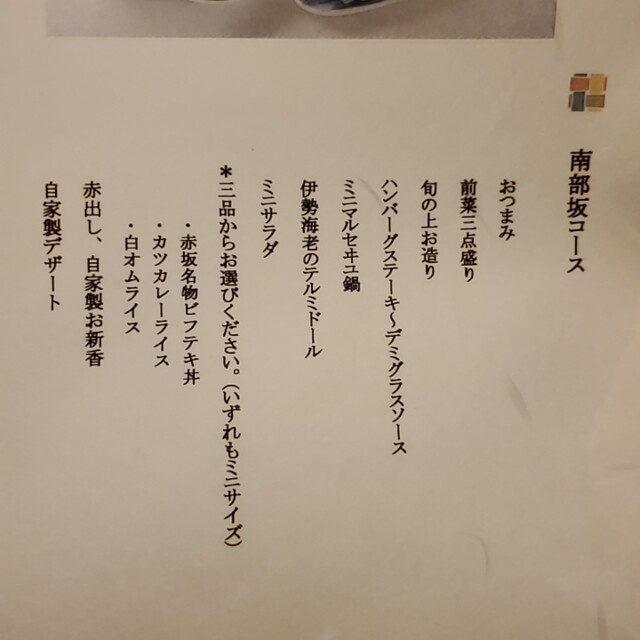 南部坂コース
おつまみ
前菜三点盛り
旬の上お造り
ハンバーグステーキ～デミグラスソース
ミニマルセヰユ鍋
伊勢海老のテルミドール
ミニサラダ
＊三品からお選びください。（いずれもミニサイズ）
・赤坂名物ビフテキ丼
・カツカレーライス
・白オムライス
赤出し、自家製お新香
自家製デザート